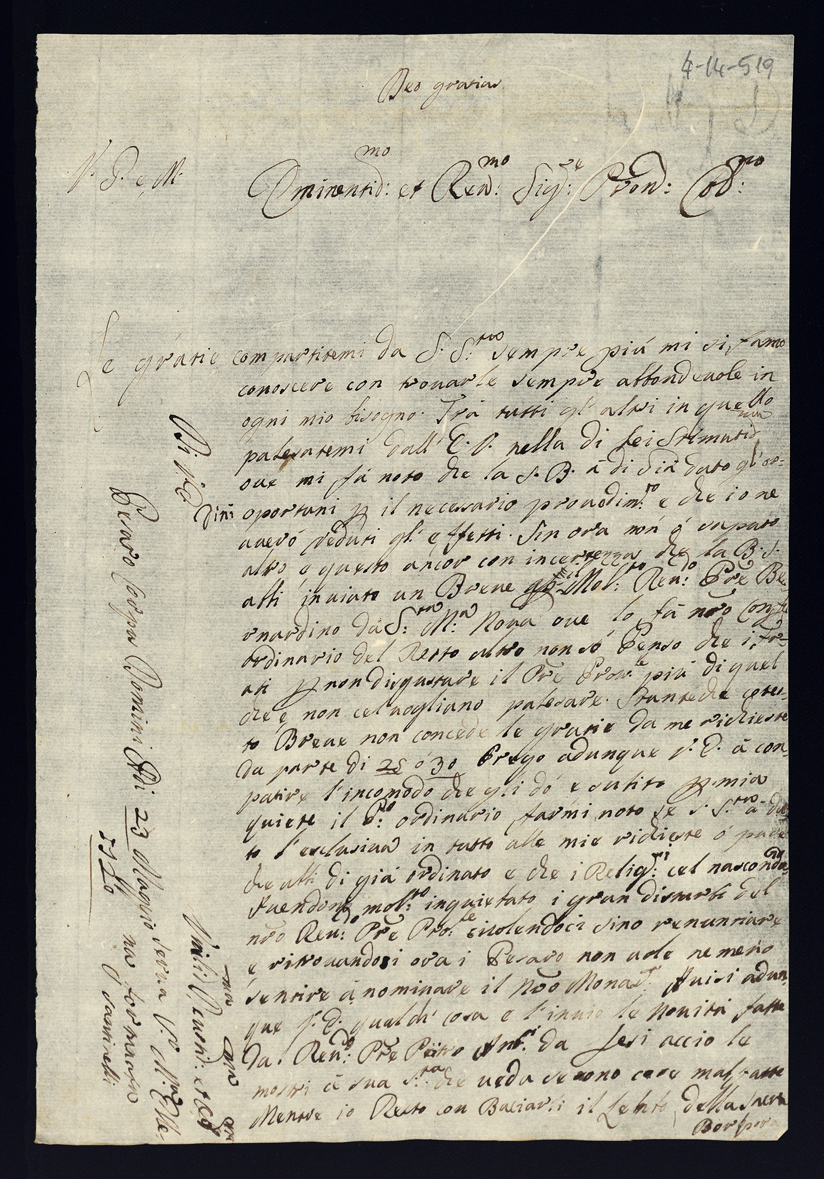 4-14-519
Deo gratias
V. G. e M.
Eminentiss:mo et Rev:mo Sig:re Pron: Col:mo
Le gratie compartitemi da S. S.tà sempre più mi si fanno
conoscere con trovarle sempre abbondevole in
ogni mio bisogno. Trà tutti gl'altri in quello
palesatemi dall'E. V. nella di lei Stimatis.ma
ove mi fà noto che la S. B. à di già dato gl'or-
oportuni p il necessario provedim:to e che io ne
averò veduti gl'effetti. Sin ora non ò saputo
altro e questo ancor con incertezza che la B. S.
abbi inviato un Breve al Mol:to Rev:do Pre Be
rnardino da S:ta M:a Nova ove lo fà nro Conf.
ordinario del Resto altro non sò Penso che i
ati p non disgustare il Pre Prov.le più di quel
che è non cel vogliano palesare. Stante che cotes-
to Breve non concede le gratie da me richieste
da parte di 25 ò 30. Prego adunque V. E. à con
patire l'incomodo che gli dò e subito p mia
quiete il P.o ordinario farmi noto se S. S.tà à da
to l'esclusiva in tutto alle mie richieste ò pure
che abbi di già ordinato e che i Relig.si cel nascondi
Avendomi mol:to inquietato i gran disturbi del
nro Rev:do Pre Pro:le volendoci sino renuntiare
e ritrovandosi ora i Pesaro non vole ne meno
sentire à nominare il Nro Monas.ro Avisi adun
que V. E. qualch' cosa e l'invio le Novità fatte
da Rev:do Pre Pietro Ant.o da Jesi accio le
mostri à sua S.tà che veda se sono cose mal fatte
Mentre io Resto con Baciarli il Lembo della Sacra
Porpora
Di V. E.
Pesaro Corpus Domini Adi 23 Maggio
1750
Umilis.ma Devot.ma et Obb.ma